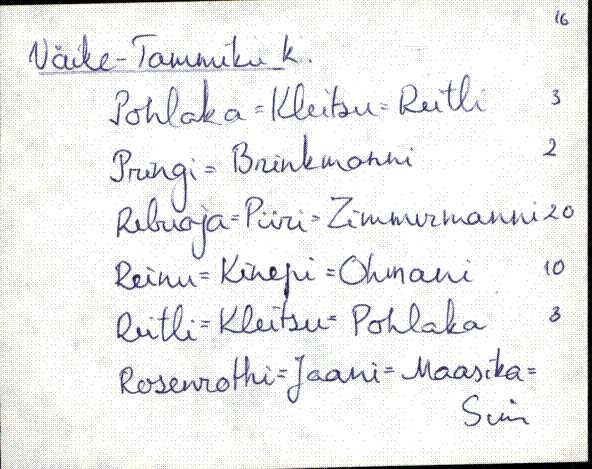 16
Väike-Tammiku k.
Pohlaka=Kleitsu=Reitli 3
Pringi= Brinkmanni 2
Rebuoja=Piiri=Zimmermanni 20
Reinu=Kinepi=Ohmani 10
Reitli=Kleitsu=Pohlaka 3
Rosenrothi=Jaani=Maasika=